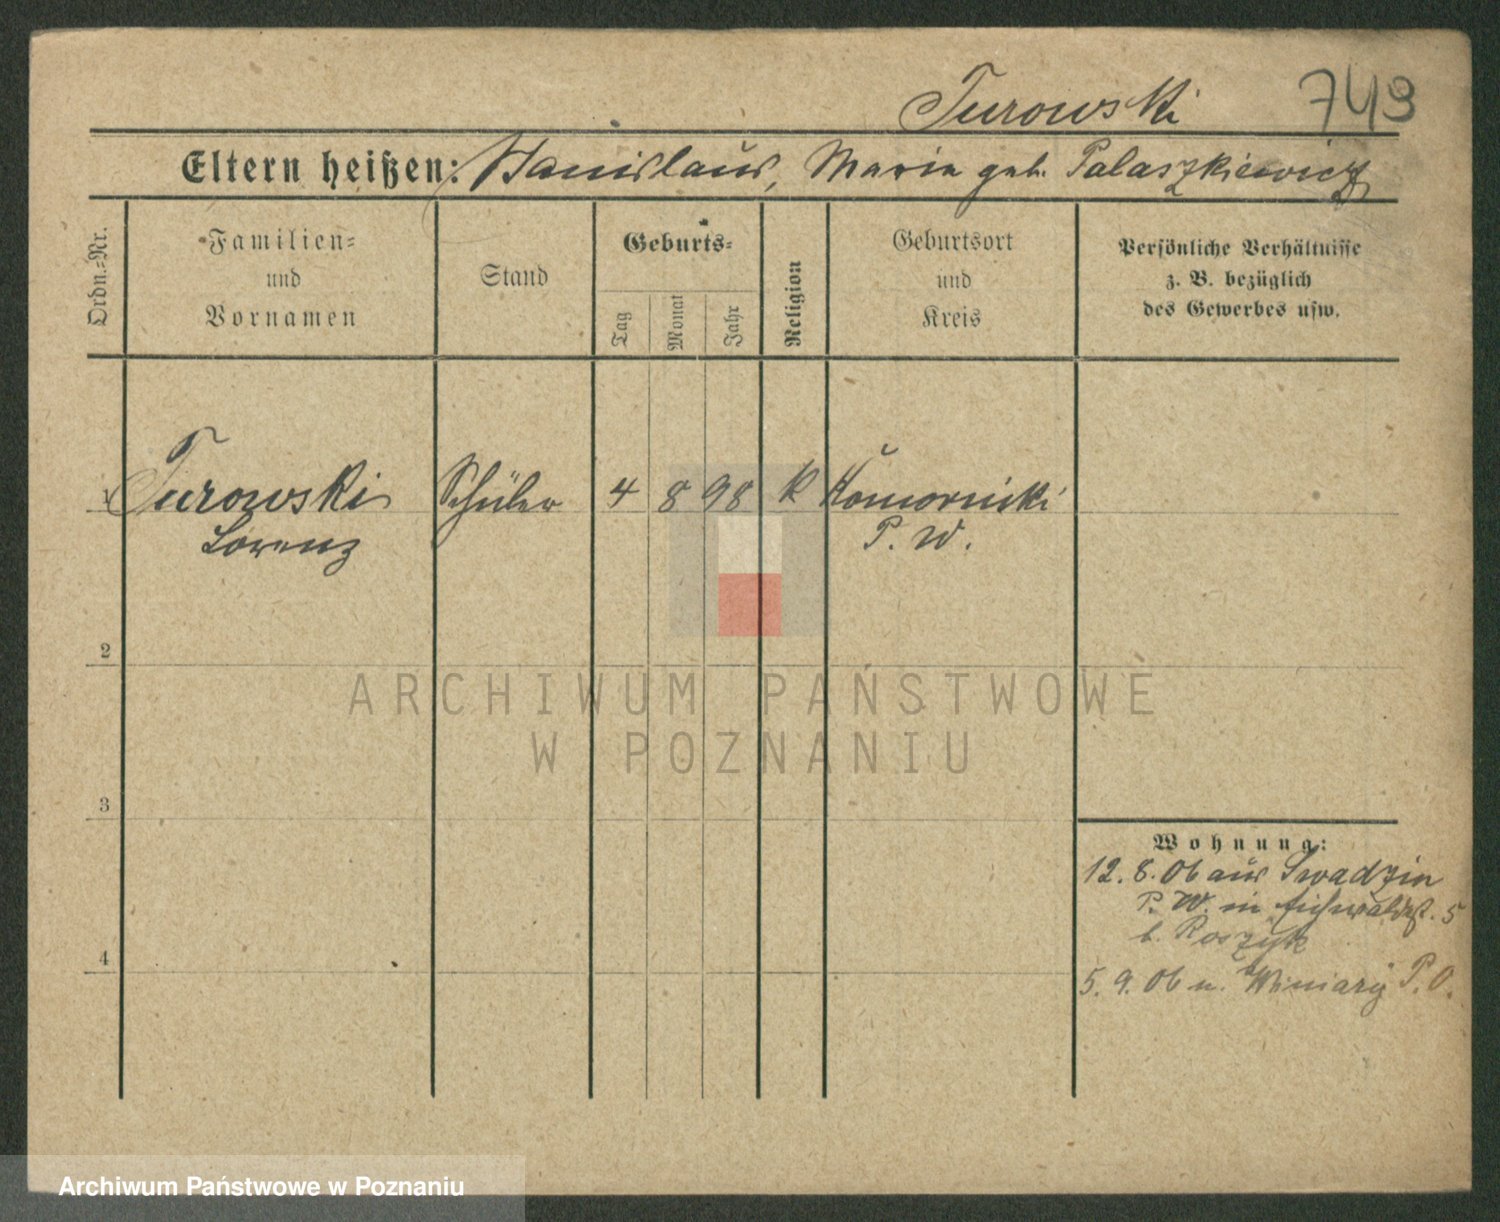 Turowski 743
Eltern heißen: Stanislaus, Maria geb. Palaszkiewicz
Ordn.=Nr.
Familien=
und
Vornamen
Stand
Geburts=
Tag
Monat
Jahr
Religion
Geburtsort
und
Kreis
Persönliche Verhältnisse
z. B. bezüglich
des Gewerbes usw.
1 Turowski Schüler 4 8 98 K Komorniki
Lorenz P. W.
2
ARCHIWUM PAŃSTWOWE
W POZNANIU
3
Wohnung:
12. 8. 06 aus Swadzin
P. W. in Eichwaldst. 5
b. Roszyk
4
5. 9. 06 n. Winiary P. O.
Archiwum Państwowe w Poznaniu